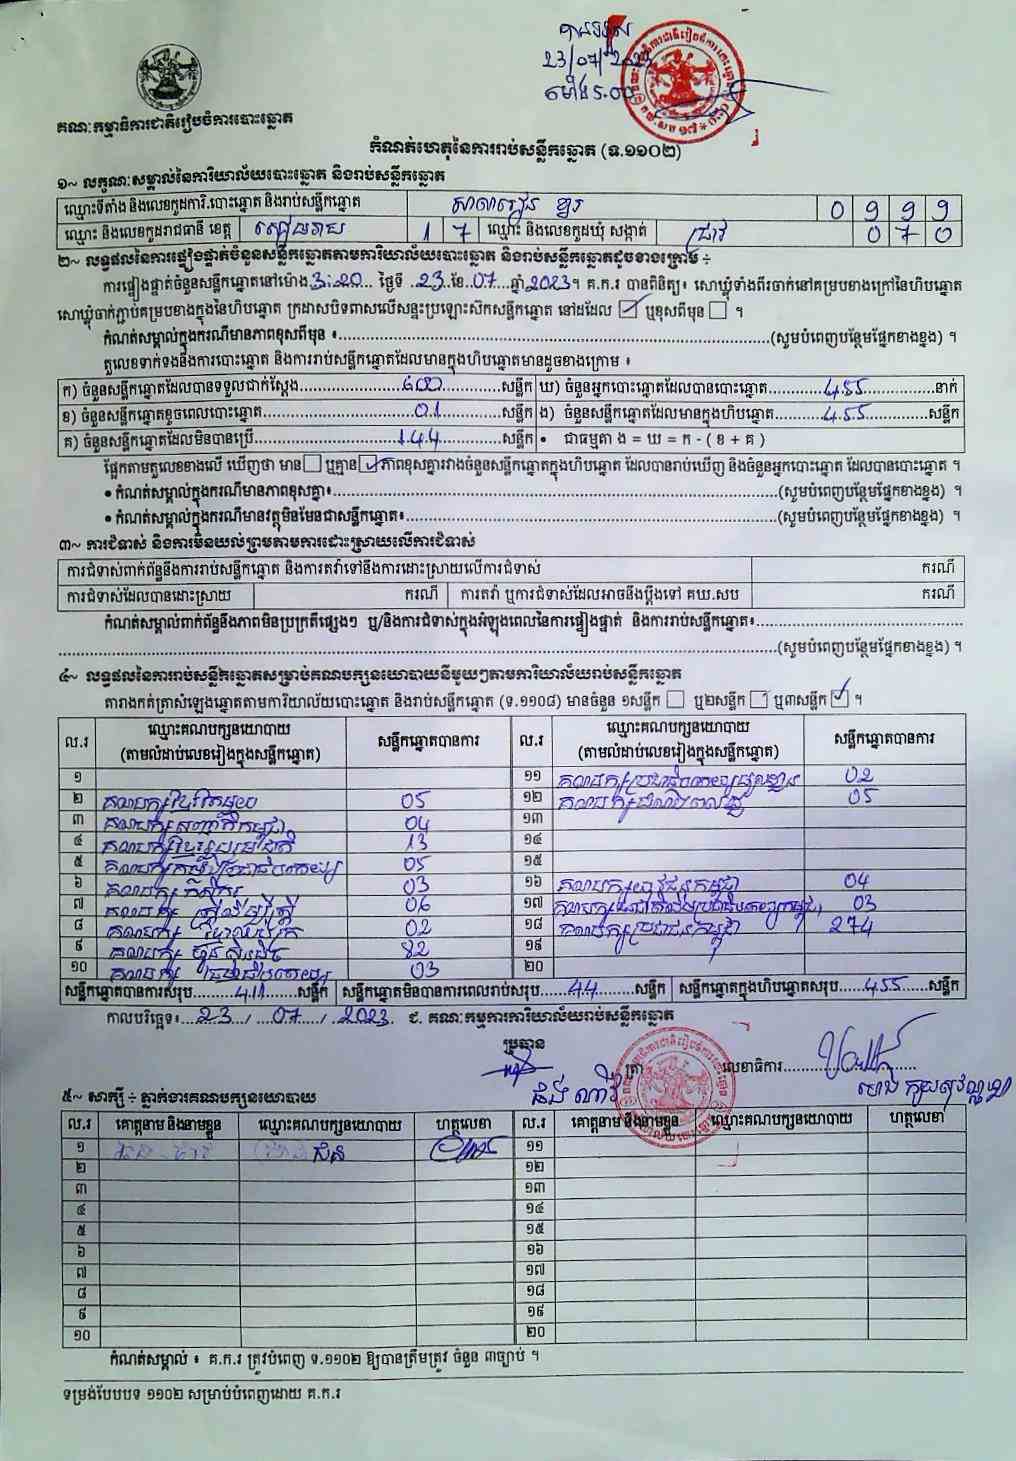 បានទទួល
23/07/2023
ម៉ោង ៩:០០
គណៈកម្មាធិការជាតិរៀបចំការបោះឆ្នោត
កំណត់ហេតុនៃការរាប់សន្លឹកឆ្នោត (ទ.១១០២)
១~ លក្ខណៈសម្គាល់នៃការិយាល័យបោះឆ្នោត និងរាប់សន្លឹកឆ្នោត
ឈ្មោះទីតាំង និងលេខកូដការិ.បោះឆ្នោត និងរាប់សន្លឹកឆ្នោត សាលារៀន 0 9 9 9
ឈ្មោះ និងលេខកូដរាជធានី ខេត្ត សៀមរាប 1 7 ឈ្មោះ និងលេខកូដឃុំ សង្កាត់ 0 7 0
២~ លទ្ធផលនៃការផ្ទៀងផ្ទាត់ចំនួនសន្លឹកឆ្នោតតាមការិយាល័យបោះឆ្នោត និងរាប់សន្លឹកឆ្នោតដូចខាងក្រោម ÷
ការផ្ទៀងផ្ទាត់ចំនួនសន្លឹកឆ្នោតនៅម៉ោង 3:20 ថ្ងៃទី 23 ខែ 07 ឆ្នាំ 2023។ គ.ក.រ បានពិនិត្យ៖ សោឃ្លុំទាំងពីរចាក់នៅគម្របខាងក្រៅនៃហិបឆ្នោត
សោឃ្លុំចាក់ភ្ជាប់គម្របខាងក្នុងនៃហិបឆ្នោត ក្រដាសបិទពាសលើសន្ទះប្រឡោះស៊កសន្លឹកឆ្នោត នៅដដែល ☑ ឬខុសពីមុន ☐ ។
កំណត់សម្គាល់ក្នុងករណីមានភាពខុសពីមុន ៖ (សូមបំពេញបន្ថែមផ្នែកខាងខ្នង) ។
តួលេខទាក់ទងនឹងការបោះឆ្នោត និងការរាប់សន្លឹកឆ្នោតដែលមានក្នុងហិបឆ្នោតមានដូចខាងក្រោម ៖
ក) ចំនួនសន្លឹកឆ្នោតដែលបានទទួលជាក់ស្ដែង 600 សន្លឹក ឃ) ចំនួនអ្នកបោះឆ្នោតដែលបានបោះឆ្នោត 455 នាក់
ខ) ចំនួនសន្លឹកឆ្នោតខូចពេលបោះឆ្នោត 01 សន្លឹក ង) ចំនួនសន្លឹកឆ្នោតដែលមានក្នុងហិបឆ្នោត 455 សន្លឹក
គ) ចំនួនសន្លឹកឆ្នោតដែលមិនបានប្រើ 144 សន្លឹក • ជាធម្មតា ង = ឃ = ក - ( ខ + គ )
ផ្អែកតាមតួលេខខាងលើ ឃើញថា មាន ☐ ឬគ្មាន ☑ ភាពខុសគ្នារវាងចំនួនសន្លឹកឆ្នោតក្នុងហិបឆ្នោត ដែលបានរាប់ឃើញ និងចំនួនអ្នកបោះឆ្នោត ដែលបានបោះឆ្នោត ។
• កំណត់សម្គាល់ក្នុងករណីមានភាពខុសគ្នា៖ (សូមបំពេញបន្ថែមផ្នែកខាងខ្នង) ។
• កំណត់សម្គាល់ក្នុងករណីមានវត្ថុមិនមែនជាសន្លឹកឆ្នោត៖ (សូមបំពេញបន្ថែមផ្នែកខាងខ្នង) ។
៣~ ការជំទាស់ និងការមិនយល់ព្រមតាមការដោះស្រាយលើការជំទាស់
ការជំទាស់ពាក់ព័ន្ធនឹងការរាប់សន្លឹកឆ្នោត និងការតវ៉ាទៅនឹងការដោះស្រាយលើការជំទាស់ ករណី
ការជំទាស់ដែលបានដោះស្រាយ ករណី ការតវ៉ា ឬការជំទាស់ដែលអាចនឹងប្ដឹងទៅ គឃ.សប ករណី
កំណត់សម្គាល់ពាក់ព័ន្ធនឹងភាពមិនប្រក្រតីផ្សេងៗ ឬ/និងការជំទាស់ក្នុងអំឡុងពេលនៃការផ្ទៀងផ្ទាត់ និងការរាប់សន្លឹកឆ្នោត៖
(សូមបំពេញបន្ថែមផ្នែកខាងខ្នង) ។
៤~ លទ្ធផលនៃការរាប់សន្លឹកឆ្នោតសម្រាប់គណបក្សនយោបាយនីមួយៗតាមការិយាល័យរាប់សន្លឹកឆ្នោត
តារាងកត់ត្រាសំឡេងឆ្នោតតាមការិយាល័យបោះឆ្នោត និងរាប់សន្លឹកឆ្នោត (ទ.១១០៨) មានចំនួន ១សន្លឹក ☐ ឬ២សន្លឹក ☐ ឬ៣សន្លឹក ☑ ។
ល.រ ឈ្មោះគណបក្សនយោបាយ (តាមលំដាប់លេខរៀងក្នុងសន្លឹកឆ្នោត) សន្លឹកឆ្នោតបានការ ល.រ ឈ្មោះគណបក្សនយោបាយ (តាមលំដាប់លេខរៀងក្នុងសន្លឹកឆ្នោត) សន្លឹកឆ្នោតបានការ
១ ១១ គណបក្ស 02
២ គណបក្ស 05 ១២ គណបក្ស 05
៣ គណបក្ស 04 ១៣
៤ គណបក្ស 13 ១៤
៥ គណបក្ស 05 ១៥
៦ គណបក្ស 03 ១៦ គណបក្សយុវជនកម្ពុជា 04
៧ គណបក្ស 06 ១៧ គណបក្ស 03
៨ គណបក្ស 02 ១៨ គណបក្សប្រជាជនកម្ពុជា 274
៩ គណបក្ស ហ៊្វុនស៊ិនប៉ិច 82 ១៩
១០ គណបក្ស 03 ២០
សន្លឹកឆ្នោតបានការសរុប 411 សន្លឹក សន្លឹកឆ្នោតមិនបានការពេលរាប់សរុប 44 សន្លឹក សន្លឹកឆ្នោតក្នុងហិបឆ្នោតសរុប 455 សន្លឹក
កាលបរិច្ឆេទ៖ 23 / 07 / 2023 ជ. គណៈកម្មការការិយាល័យរាប់សន្លឹកឆ្នោត
ប្រធាន ត្រា លេខាធិការ
៥~ សាក្សី ÷ ភ្នាក់ងារគណបក្សនយោបាយ
ល.រ គោត្តនាម និងនាមខ្លួន ឈ្មោះគណបក្សនយោបាយ ហត្ថលេខា ល.រ គោត្តនាម និងនាមខ្លួន ឈ្មោះគណបក្សនយោបាយ ហត្ថលេខា
១ ១១
២ ១២
៣ ១៣
៤ ១៤
៥ ១៥
៦ ១៦
៧ ១៧
៨ ១៨
៩ ១៩
១០ ២០
កំណត់សម្គាល់ ៖ គ.ក.រ ត្រូវបំពេញ ទ.១១០២ ឱ្យបានត្រឹមត្រូវ ចំនួន ៣ច្បាប់ ។
ទម្រង់បែបបទ ១១០២ សម្រាប់បំពេញដោយ គ.ក.រ